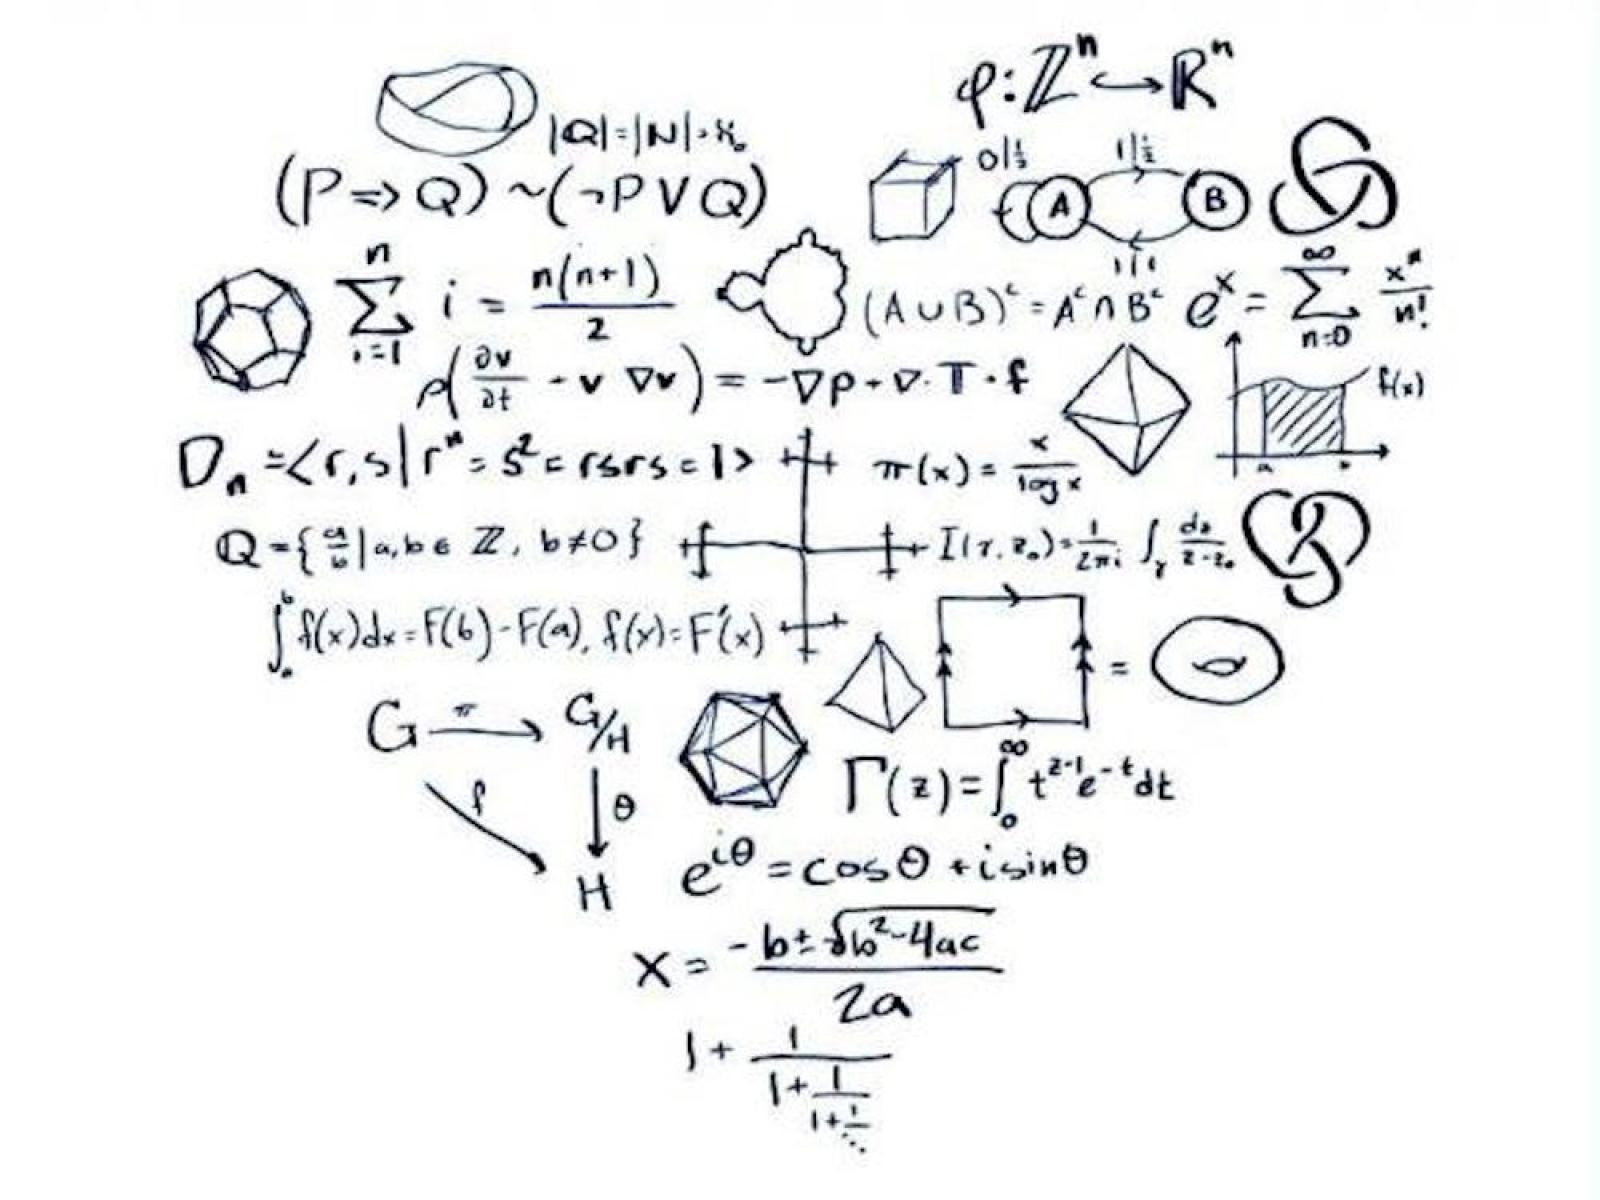 φ: ℤⁿ ↪ ℝⁿ
|Q| = |N| = ℵ₀
(P ⇒ Q) ~ (¬P ∨ Q)
0|½ A 1|½ B
1|1
n
∑ i = n(n+1)/2
i=1
(A ∪ B)ᶜ = Aᶜ ∩ Bᶜ
∞
eˣ = ∑ xⁿ/n!
n=0
ρ(∂v/∂t - v ∇v) = -∇p + ∇·T · f
f(x)
a b
Dₙ = <r, s | rⁿ = s² = rsrs = 1>
π(x) = x/log x
Q = { a/b | a, b ∈ ℤ, b ≠ 0 }
I(γ, z₀) = 1/2πi ∫ᵧ dz/z-z₀
∫ₐᵇ f(x)dx = F(b) - F(a), f(x) = F′(x)
=
G π G/H
f θ
H
Γ(z) = ∫₀^∞ t^(z-1) e^(-t) dt
e^(iθ) = cosθ + isinθ
x = -b ± √b² - 4ac
2a
1 + 1
1 + 1
1 + 1
⋱